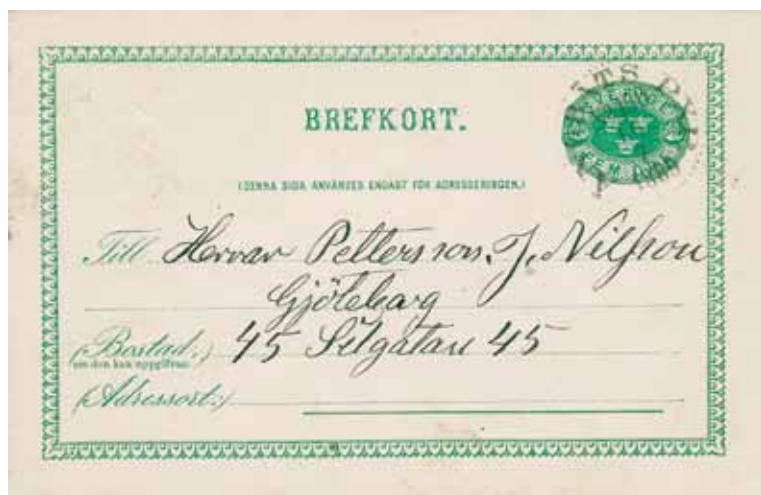 BREFKORT.
SVERIGE
FEM ÖRE
(DENNA SIDA ANVÄNDES ENDAST FÖR ADRESSERINGEN.)
Till Herrar Pettersson, J. Nilsson
Gjöteborg
(Bostad:) 45 Silgatan 45
om den kan uppgifvas.
(Adressort:)